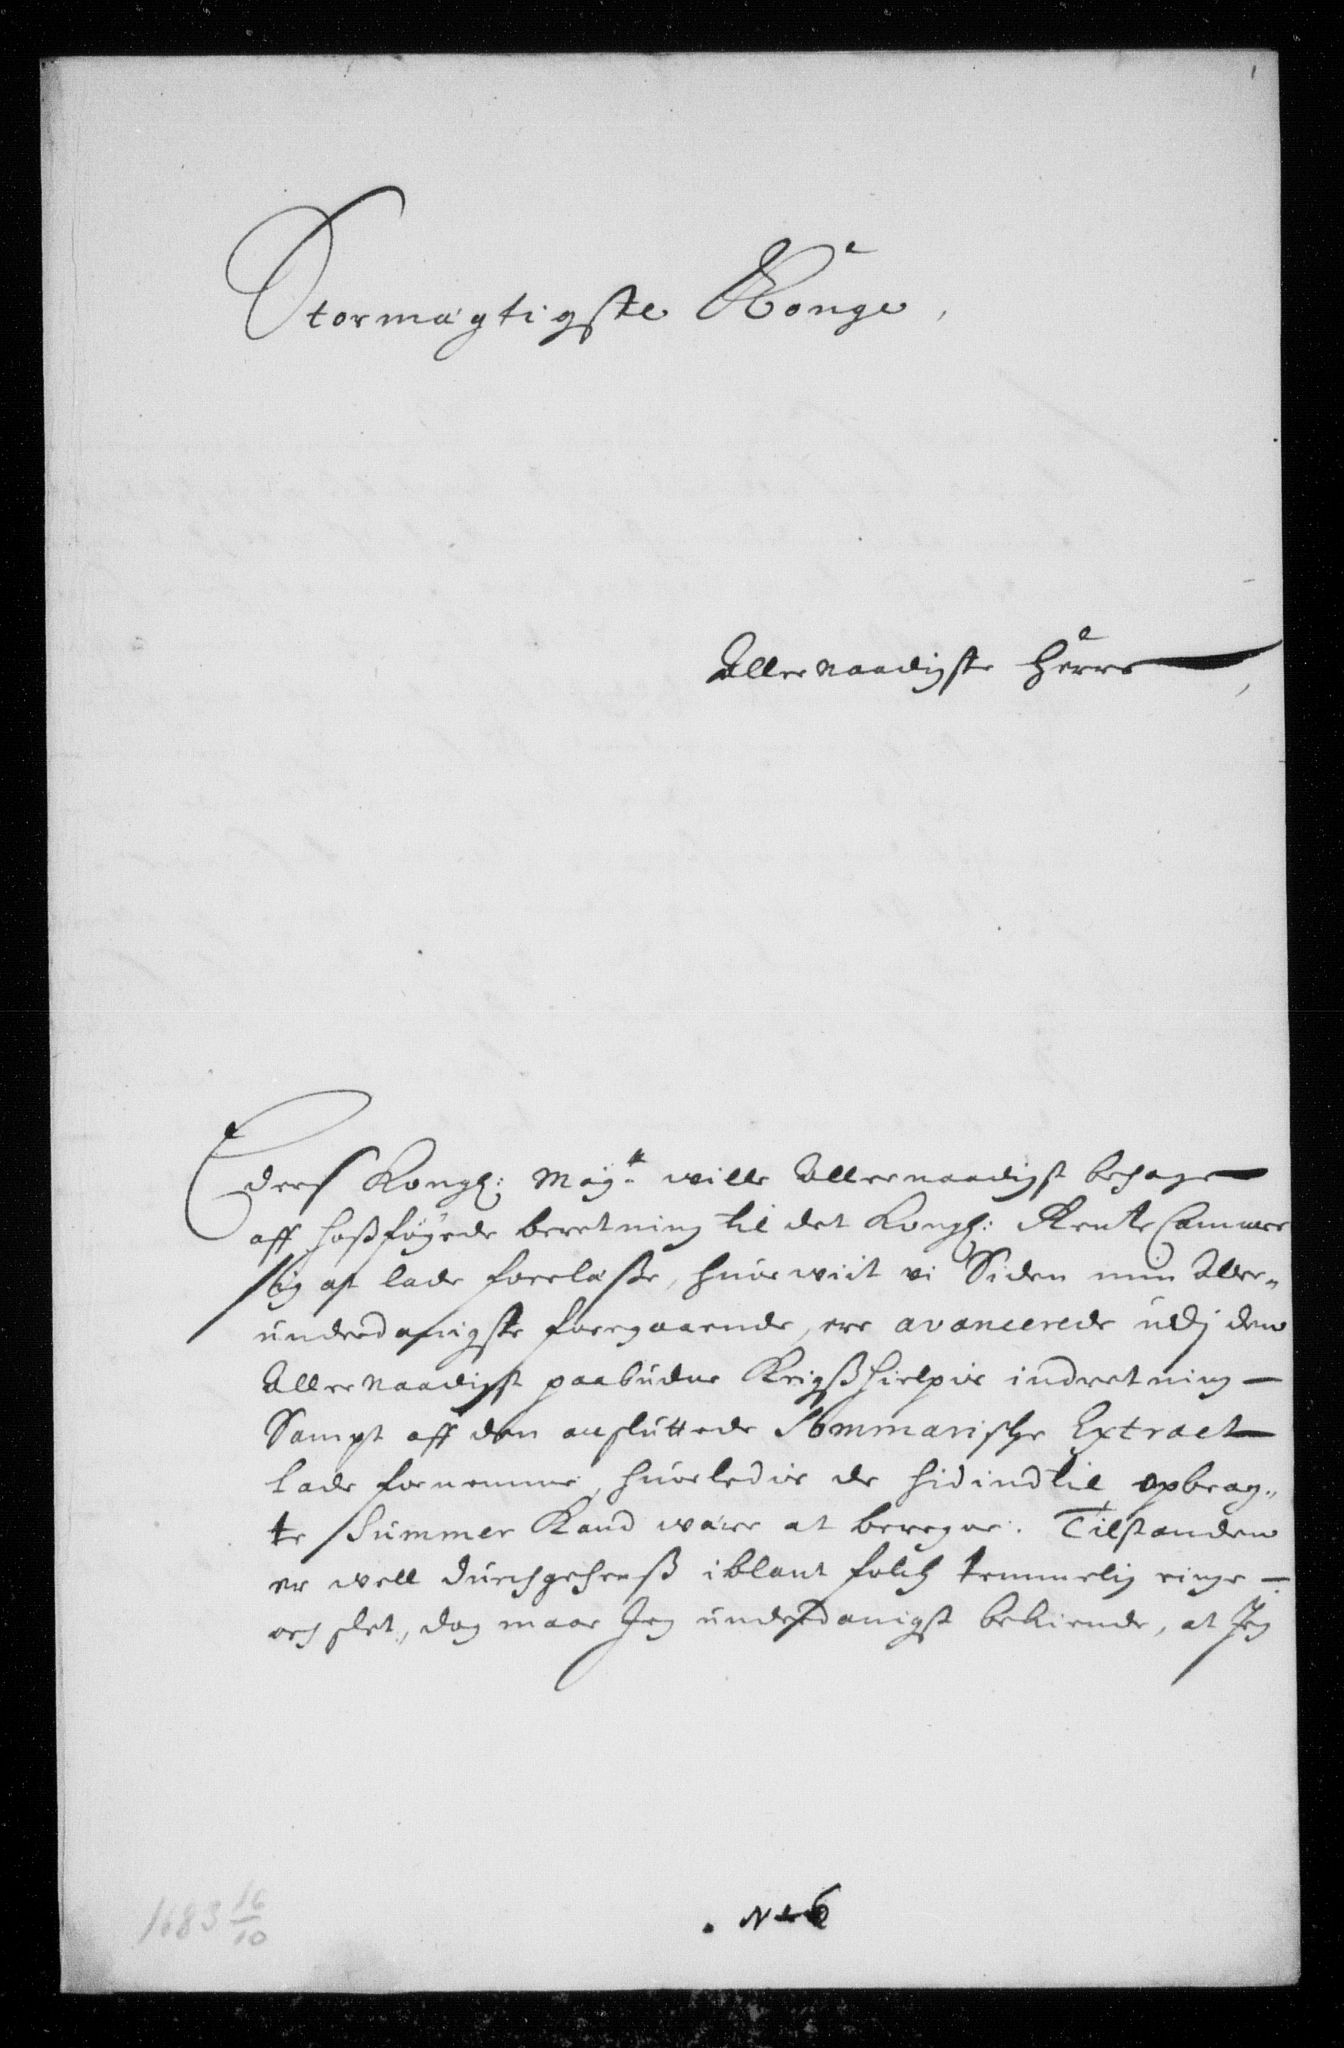 1
Stormægtigste Konge,
Allernaadigste Herre,
Eders Kongl: Maÿtt wille Allernaadigst behage
aff hoßføÿede beretning til det Kongl: Rente Cammer
sig at lade foreläße, huor wiit vi Siden min Aller„
underdanigste foregaaende, ere avancerede udj den
Allernaadigst paabudne Krigßhielpis indretning
Sampt aff den ansluttede Sommarische Extract
lade fornemme, huorledis de hidindtil opbrag„
te Summer Kand wære at beregne. Tilstanden
er well durchgehenß iblant folch temmelig ringe
och slet, dog maa Jeg underdanigst bekiende, at Jeg
No 6
1683 16/10